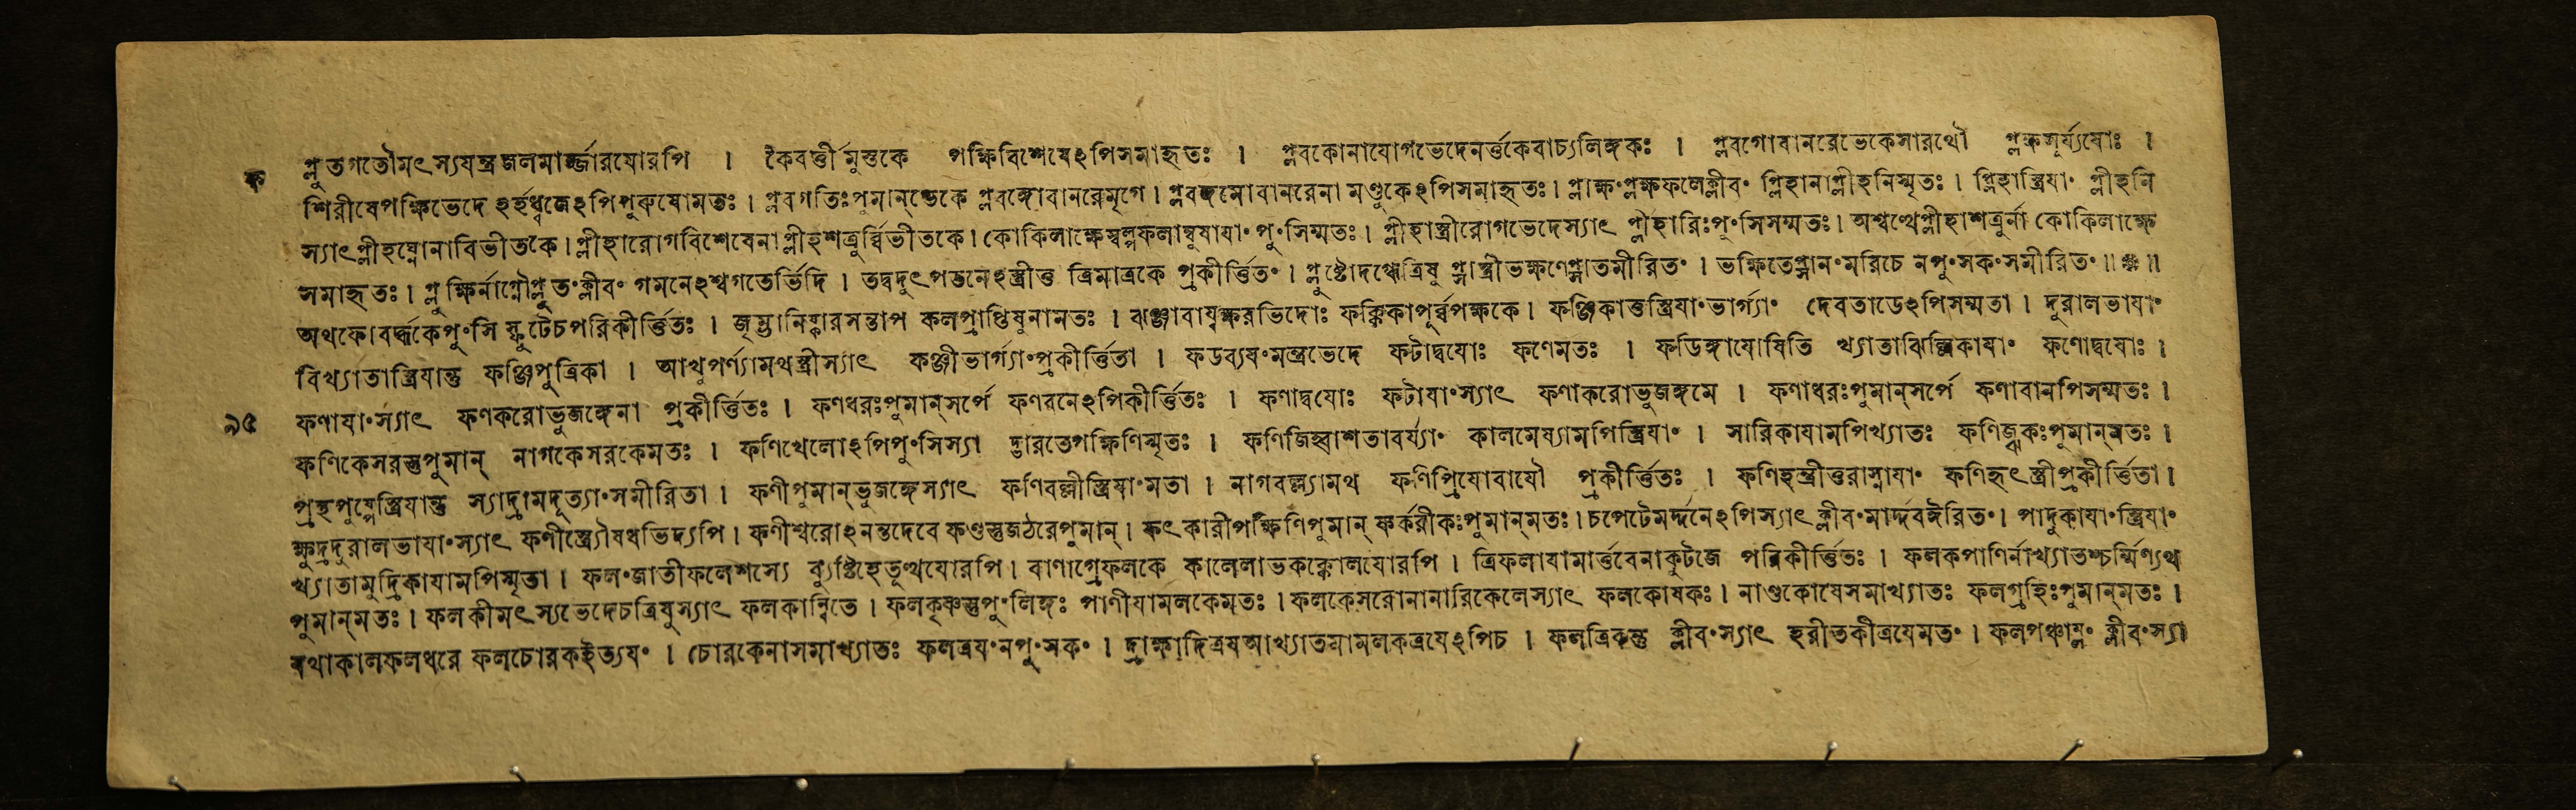 প্লুতগতৌমৎস্যযন্ত্রজলমার্জ্জারযোরপি । কৈবর্ত্তীমুস্তকে পক্ষিবিশেষেঽপিসমাহৃতঃ । প্লবকোনাযোগভেদেনর্ত্তকেবাচ্যলিঙ্গকঃ । প্লবগোবানরেভেকেসারথৌ প্লক্ষসূর্য্যযোঃ ।
ক
শিরীষেপক্ষিভেদে প্লবগতিঃপুমান্ভেকে প্লবঙ্গোবানরেমৃগে । প্লবঙ্গমোবানরেনা মণ্ডুকেঽপিসমাহৃতঃ । প্লাক্ষংপ্লক্ষফলেক্লীবং প্লিহানাপ্লীহনিস্মৃতঃ । প্লিহাস্ত্রিযাং প্লীহনি
স্যাৎপ্লীহঘ্নোনাবিভীতকে । প্লীহারোগবিশেষেনাপ্লীহশত্রুর্ব্বিভীতকে । কোকিলাক্ষে পুংসিম্মতঃ । প্লীহাস্ত্রীরোগভেদেস্যাৎ প্লীহারিঃপুংসিসম্মতঃ । অশ্বত্থেপ্লীহাশত্রুর্না কোকিলাক্ষে
সমাহৃতঃ । প্লুক্ষির্নাগ্নৌপ্লুতংক্লীবং গমনেঽশ্বগতের্ভিদি । তদ্বদুৎপতনেঽস্ত্রীত্ত ত্রিমাত্রকে প্রকীর্ত্তিতং । প্লুষ্টোদগ্ধেত্রিষু প্সাস্ত্রীভক্ষণেপ্সাতমীরিতং । ভক্ষিতেপ্সানংমরিচে নপুংসকংসমীরিতং ॥ ॥
অথফোবর্দ্ধকেপুংসি স্ফুটেচপরিকীর্ত্তিতঃ । জৃম্ভানিষ্ফারসন্তাপ ফলপ্রাপ্তিষুনামতঃ । ঝঞ্ঝাবায়ৃক্ষরভিদোঃ ফক্কিকাপূর্ব্বপক্ষকে । ফঞ্জিকাত্তস্ত্রিযাংভার্গ্যাং দেবতাডেঽপিসম্মতা । দুরালভাযাং
বিখ্যাতাস্ত্রিযান্তু ফঞ্জিপুত্রিকা । আখুপর্ণ্যামথস্ত্রীস্যাৎ ফঞ্জীভার্গ্যাংপ্রকীর্ত্তিতা । ফডব্যযংমন্ত্রভেদে ফটাদ্বযোঃ ফণেমতঃ । ফডিঙ্গাযোষিতি খ্যাতাঝিল্লিকাযাং ফণোদ্বযোঃ ।
৯৫
ফণাযাংস্যাৎ ফণকরোভুজঙ্গেনা প্রকীর্ত্তিতঃ । ফণধরঃপুমান্সর্পে ফণবানেঽপিকীর্ত্তিতঃ । ফণাদ্বযোঃ ফটাযাংস্যাৎ ফণাকরোভুজঙ্গমে । ফণাধরঃপুমান্সর্পে ফণাবানপিসম্মতঃ ।
ফণিকেসরস্তুপুমান্ নাগকেসরকেমতঃ । ফণিখেলোঽপিপুংসিস্যা দ্ভারতেপক্ষিণিস্মৃতঃ । ফণিজিহ্বাশতাবর্য্যাং কালমেষ্যামপিস্ত্রিযাং । সারিকাযামপিখ্যাতঃ ফণিজ্ঝকঃপুমান্মতঃ ।
স্যাদ্রামদূত্যাংসমীরিতা । ফণীপুমান্ভুজঙ্গেস্যাৎ ফণিবল্লীস্ত্রিযাংমতা । নাগবল্ল্যামথ ফণিপ্রিযোবাযৌ প্রকীর্ত্তিতঃ । ফণিহন্ত্রীত্তরাস্নাযাং ফণিহৃৎস্ত্রীপ্রকীর্ত্তিতা ।
ক্ষুদ্রদুরালভাযাংস্যাৎ ফণীস্ত্র্যৌষধভিদ্যপি । ফণীশ্বরোঽনন্তদেবে ফণ্ডস্তুজঠরেপুমান্ । ফৎকারীপক্ষিণিপুমান্ ফর্ফরীকঃপুমান্মতঃ । চপেটেমর্দ্দনেঽপিস্যাৎ ক্লীবংমার্দ্দবঈরিতং । পাদুকাযাংস্ত্রিযাং
খ্যাতামুদ্রিকাযামপিস্মৃতা । ফলংজাতীফলেশস্যে ব্যুষ্টিহেতূত্থযোরপি । বাণাগ্রেফলকে কালেলাভকক্কোলযোরপি । ত্রিফলাযামার্ত্তবেনাকুটজে পরিকীর্ত্তিতঃ । ফলকপাণির্নাখ্যাতশ্চর্ম্মিণ্যথ
পুমান্মতঃ । ফলকীমৎস্যভেদেচত্রিষুস্যাৎ ফলকান্বিতে । ফলকৃষ্ণস্তুপুংলিঙ্গঃ পাণীযামলকেমৃতঃ । ফলকেসরোনানারিকেলেস্যাৎ ফলকোষকঃ । নাণ্ডকোষেসমাখ্যাতঃ ফলগ্রহিঃপুমান্মতঃ ।
যথাকালফলধরে ফলচোরকইত্যযং । চোরকেনাসমাখ্যাতঃ ফলত্রযংনপুংসকং । দ্রাক্ষাদিত্রযআখ্যাতমামলকত্রযেঽপিচ । ফলত্রিকন্তু ক্লীবংস্যাৎ হরীতকীত্রযেমতং । ফলপঞ্চাম্লং ক্লীবংস্যা